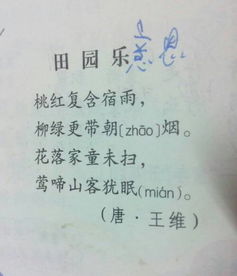 田园乐
桃红复含宿雨，
柳绿更带朝(zhāo)烟。
花落家童未扫，
莺啼山客犹眠(mián)。
(唐·王维)